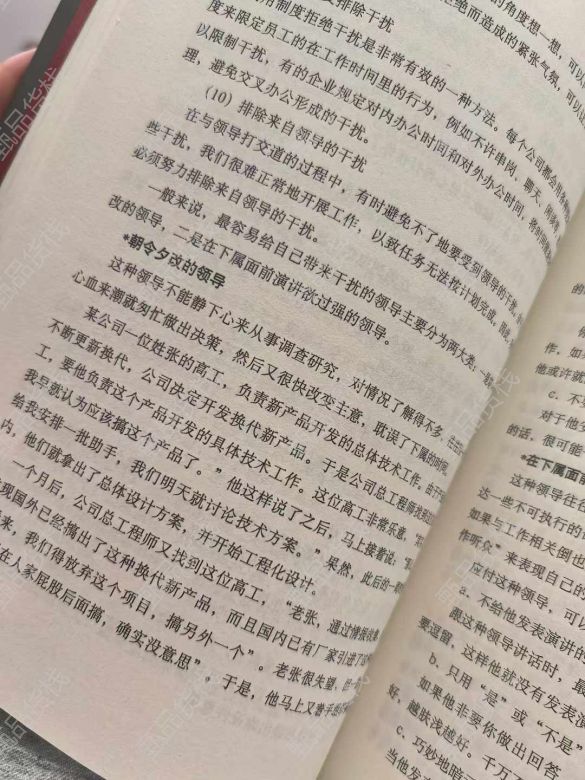 的角度想一想，可
绝而造成的紧张气氛，可以
用制度拒绝干扰是非常有效的一种方法。每个公司都会
度来限定员工的在工作时间里的行为，例如不许串岗、聊天、
以限制干扰，有的企业规定对内办公时间和对外办公时间，将
理，避免交叉办公形成的干扰。
（10）排除来自领导的干扰
在与领导打交道的过程中，有时避免不了地要受到领导的干扰。
些干扰，我们很难正常地开展工作，以致任务无法按计划完成，因此
必须努力排除来自领导的干扰。
一般来说，最容易给自己带来干扰的领导主要分为两大类：一
改的领导，二是在下属面前演讲欲过强的领导。
*朝令夕改的领导
这种领导不能静下心来从事调查研究，对情况了解得不多，
心血来潮就匆忙做出决策，然后又很快改变主意，耽误了下属的时间。
某公司一位姓张的高工，负责新产品开发的总体技术工作，由于
不断更新换代，公司决定开发换代新产品。于是公司总工程师
工，要他负责这个产品开发的具体技术工作。这位高工非常乐意，
我早就认为应该搞这个产品了。”他这样说了之后，马上接着说：
给我安排一批助手，我们明天就讨论技术方案。”果然，此后的一
内，他们就拿出了总体设计方案，并开始工程化设计。
一个月后，公司总工程师又找到这位高工，“老张，通过情报
现国外已经搞出了这种换代新产品，而且国内已有厂家引进了
来，我们得放弃这个项目，搞另外一个”。老张很失望，
在人家屁股后面搞，确实没意思”。于是，他马上又着手
作，如
他或许就
c. 不
对于他
的话，很可能
*在下属面前
这种领导往
达一些不可执行的
如果与工作相关倒也
作听众”来表现自己的
应付这种领导，可以
a. 不给他发表演讲的
跟这种领导讲话时，最
要逗留，这样他就没有发表演
b. 只用“是”或“不是”
如果他非要你做出回答
好，越肤浅越好。千万
c. 巧妙地
当他发
甄品货栈